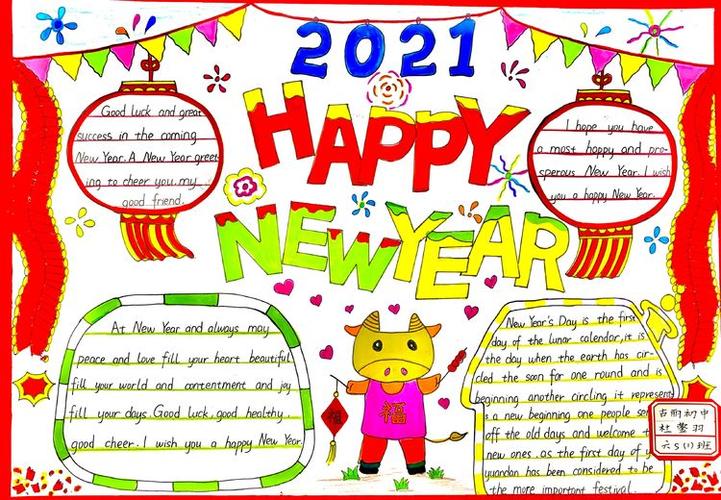 2021
HAPPY
NEW YEAR
Good luck and great
success in the coming
New Year. A New Year greet-
ing to cheer you, my
good friend.
I hope you have
a most happy and pro-
sperous New Year. I wish
you a happy New Year.
At New Year and always may
peace and love fill your heart beautiful
fill your world and contentment and joy
fill your days. Good luck. good healthy.
good cheer. I wish you a happy New Year.
福
福
New Year's Day is the first
day of the lunar calendar, it is
the day when the earth has cir-
cled the son for one round and is
beginning another circling it represent
s a new beginning one people
off the old days and welcome
new ones. as the first day of y
yuandan has been considered to be
the more important festival.
初中
六5(1)班